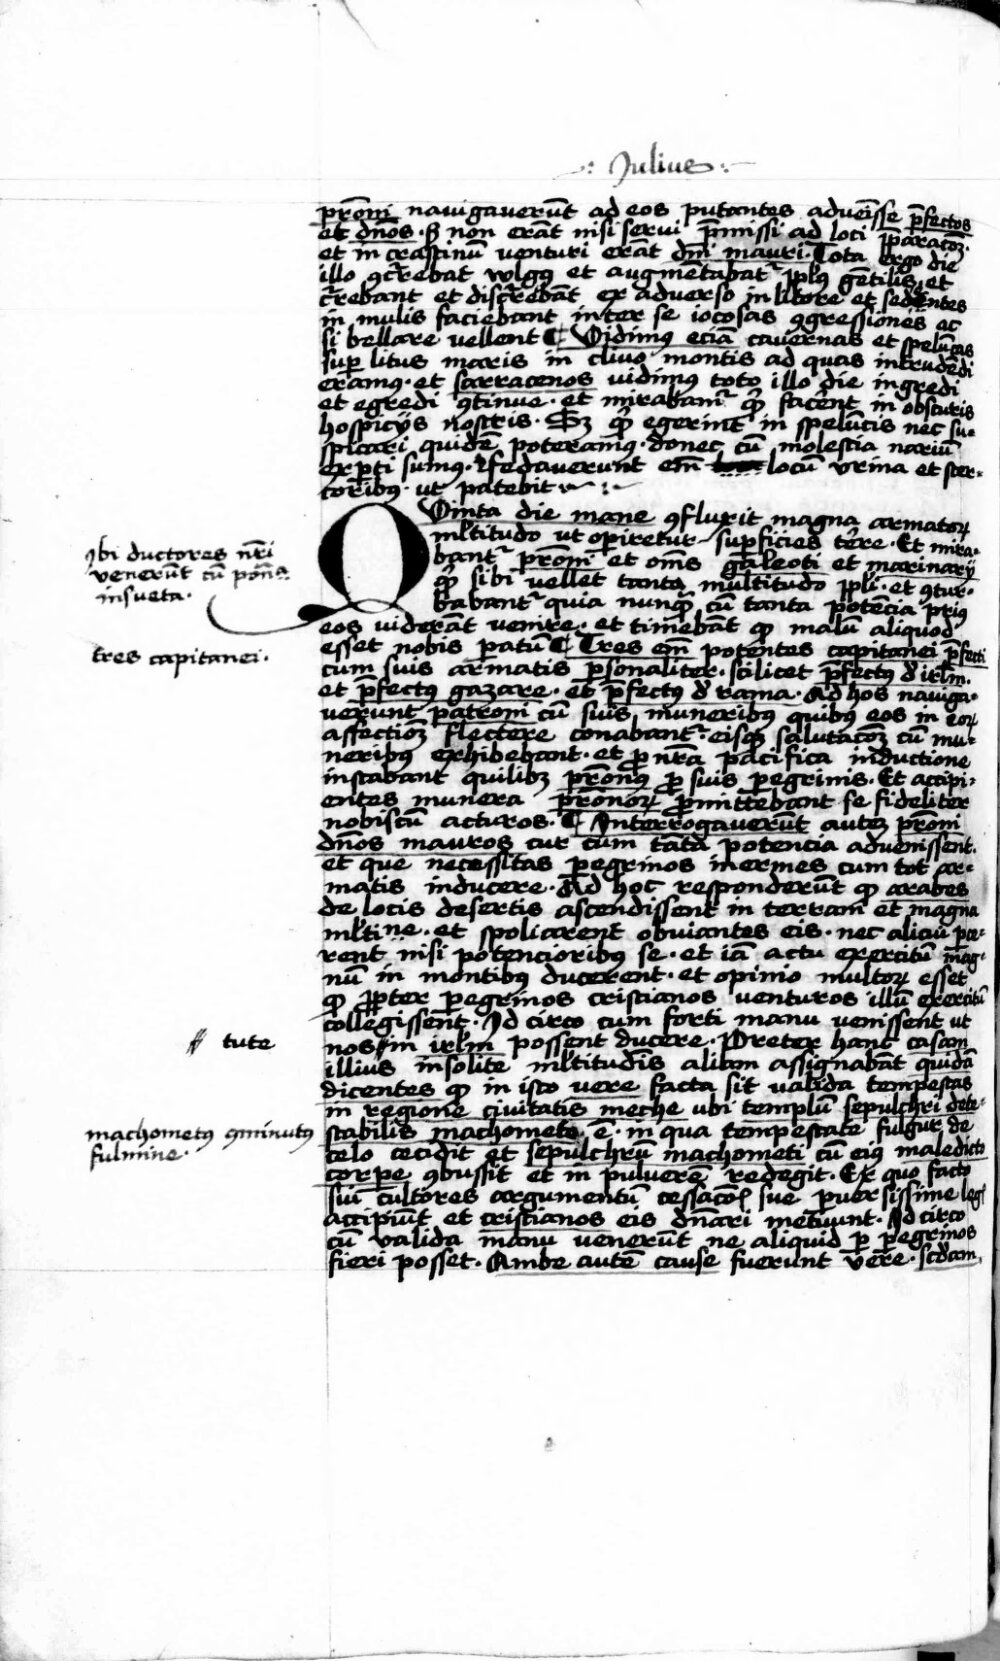 ·: Julius :·
pr̄oni navigaverūt ad eos putantes adven̄isse p̄fectos
et dn̄os · s̄ non erāt nisi servi p̄missi ad loci p̄paracōȝ ·
et in crastinū venturi erāt dn̄i mauri · Tota ergo die
illo ꝯcr̄rebat vulgꝰ et augmētabatr̄ ppl̄us gētilis · et
cr̄rebant et discr̄rebāt ex adverso in litore et sedentes
in mulis faciebant inter se iocosas ꝯgressiones ac
si bellare vellent ¶ Vidimꝰ eciā cavernas et spelūcas
sup̄ litus maris in clivo montis ad quas intrudēdi
eramꝰ · et sarracenos vidimꝰ toto illo die ingredi
et egredi ꝯtinue · et mirabamr̄ qd̄ facēnt in obscuris
hospicijs nostris · Sȝ qd̄ egerint in spelūcis nec su-
spicari quidē poteramꝰ · donec cū molestia nariū
exp̄ti sumꝰ · Nefedaverunt em̄ locū urina et ster-
coribꝰ · ut patebit
Quinta die mane ꝯfluxit magna armatoꝝ
ml̄titudo ut operiretur superficies terre · Et mira-
bantr̄ pr̄oni et om̄s galeoti et marinarij
qd̄ sibi vellet tanta multitudo ppl̄i · et ꝯtur-
babantr̄ quia nunqꝫ cū tanta potēcia priꝰ
eos viderāt venire · et timebāt qd̄ malū aliquod
esset nobis patūm ¶ Tres em̄ potentes capitanei p̄fecti
cum suis armatis p̄sonaliter · scilicet p̄fectꝰ d̄ irl̄m ·
et p̄fectꝰ gazare · et p̄fectꝰ d̄ rama · Ad hos naviga-
verunt patroni cū suis muneribꝰ quibꝰ eos in eoꝝ
affectiōȝ flectere conabantr̄ · eisqꝫ salutacōȝ cū mu-
neribꝰ exhibebant · et pro nr̄a pacifica inductione
instabant quilibȝ pr̄onꝰ pro suis pegrinis · Et accipi-
entes munera pr̄onoꝝ p̄mittebant se fideliter
nobiscū acturos · ¶ Interrogaverūt autē pr̄oni
dn̄os mauros cur cum tāta potencia advenissent ·
et que necessitas pegrinos inermes cum tot ar-
matis inducere · Ad hoc responderūt qd̄ arabes
de locis desertis ascendissent in terram et magna
ml̄tine · et spoliarent obviantes eis · nec alicui parce-
rent nisi potencioribus se · et iā actu exercitū mag-
nū in montibus ducerent · et opinio multoꝝ esset
qd̄ propter pegrinos cristianos venturos illū exercitū
collegissent · Id circo cum forti manu venissent ut
nos in irl̄m possent ducere · Preter hanc casam
illius insolite ml̄titudis aliam assignabāt quidā
dicentes qd̄ in isto vere facta sit valida tempestas
in regione civitatis meche ubi templū sepulchri dete-
stabilis machometi ē · in qua tempestate fulgur de
celo cecidit et sepulchrū machometi cū eiꝰ maledicto
corpe ꝯbussit et in pulverē redegit · Ex quo facto
sui cultores argumentū cessacōis sue perversissime leḡ
accipiūt et cristianos eis dn̄ari metuunt · Id circo
cū valida manu venerūt ne aliquid per pegrinos
fieri posset · Ambe autē cause fuerunt vere · scd̄am
ꝯbi ductores nr̄i
venerūt cū potn̄a
insueta ·
tres capitanei ·
tute
machometꝰ ꝯminutꝰ
fulmine ·